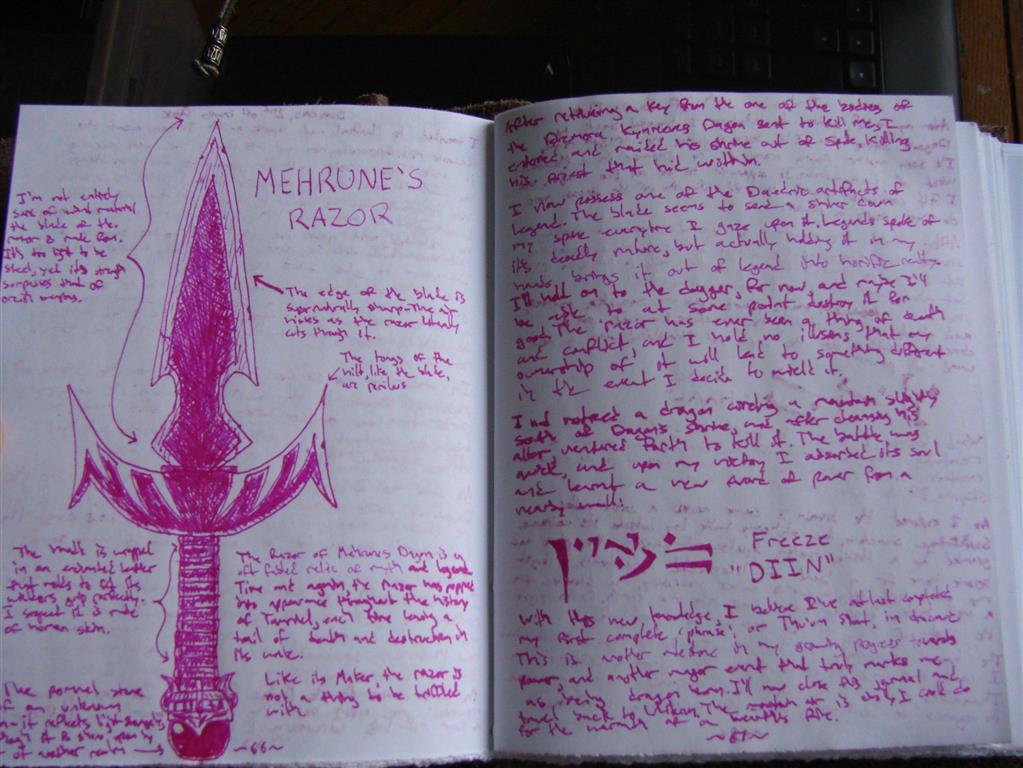 MEHRUNE'S
RAZOR
I'm not entirely
sure of what material
the blade of the
razor is made from.
It's too light to be
steel, yet its strength
surpasses that of
The edge of the blade is
supernaturally sharp. The air
as the razor literally
cuts through it.
The tongs of the
hilt, like the blade,
are perilous
The handle is wrapped
in an leather
that to fit the
grip perfectly.
I suspect it is made
of human skin.
The pommel stone
of an unknown
it reflects light
of another realm
The Razor of Mehrunes Dagon is an
oft fabled relic of myth and legend.
Time and again the razor has popped
into appearance throughout the history
of Tamriel, each time leaving a
trail of death and destruction in
its wake.
Like its maker, the razor is
not a thing to be trifled
with.
~66~
After retrieving a key from the one of the bodies of
the Kynreeves Dagon sent to kill me, I
entered and raided his shrine out of spite, killing
his priest that hid within.
I now possess one of the Daedric artifacts of
legend. The blade seems to send a shiver down
my spine everytime I gaze upon it. Legends spoke of
its deadly nature, but actually holding it in my
hands brings it out of legend into horrific reality.
I'll hold on to the dagger, for now, and maybe I'll
be able to at some point destroy it for
good. The razor has ever been a thing of death
and conflict, and I hold no illusions that my
ownership of it will lead to something different
in the event I decide to wield it.
I had noticed a dragon circling a mountain slightly
south of Dagon's shrine, and after cleansing his
altar ventured forth to kill it. The battle was
quick, and upon my victory I absorbed its soul
and learnt a new word of power from a
nearby wall:
Freeze
"DIIN"
With this new knowledge, I believe I've at last completed
my first complete 'phrase', or Thu'um shout, in
This is another milestone in my progress towards
power, and another major event that truly marks me
as being dragon born. I'll now close this journal and
travel back to The mountain air is chilly, I could do
for the warmth of a hearth's fire.
~67~